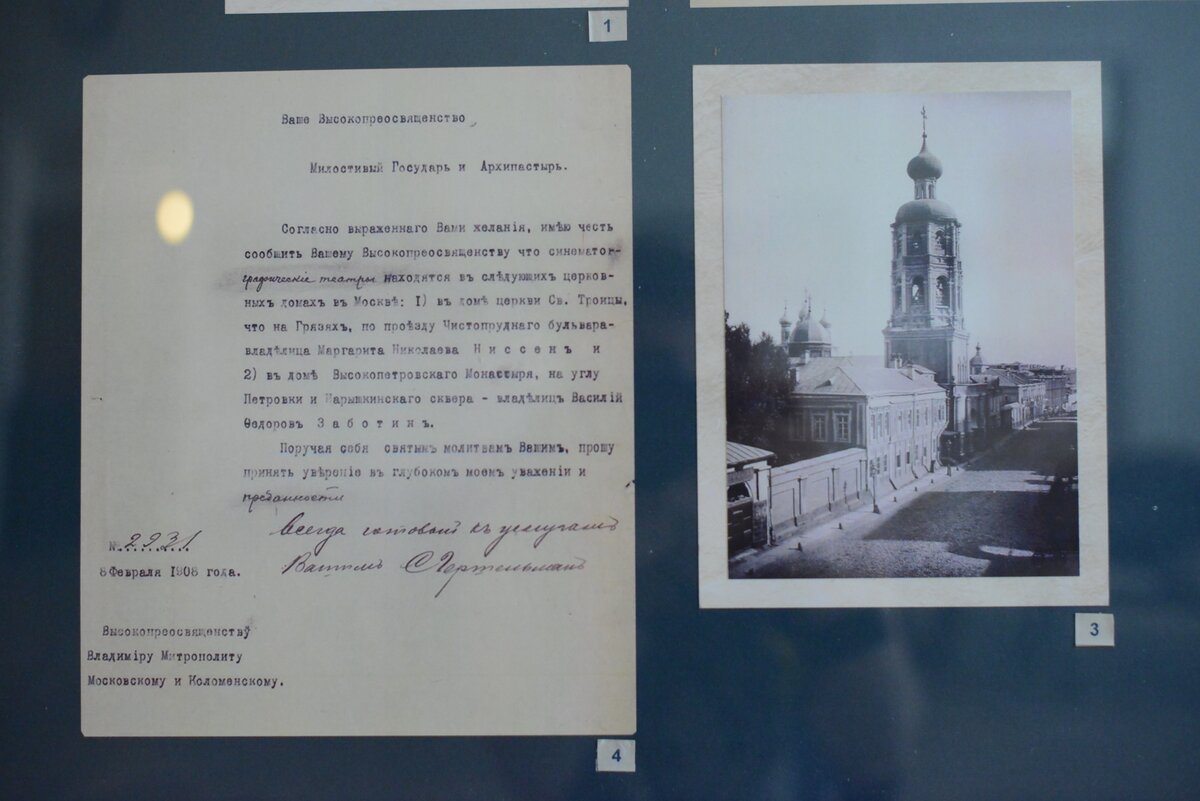 1
Ваше Высокопреосвященство,
Милостивый Государь и Архипастырь.
Согласно выраженнаго Вами желанія, имѣю честь
сообщить Вашему Высокопреосвященству что синематог-
рафическіе театры находятся въ слѣдующихъ церков-
ныхъ домахъ въ Москвѣ: I) въ домѣ церкви Св. Троицы,
что на Грязяхъ, по проѣзду Чистопруднаго бульвара-
владѣлица Маргарита Николаева Ниссенъ и
2) въ домѣ Высокопетровскаго Монастыря, на углу
Петровки и Нарышкинскаго сквера - владѣлицъ Василій
Ѳедоровъ Заботинъ.
Поручая себя святымъ молитвамъ Вашимъ, прошу
принять увѣреніе въ глубокомъ моемъ уваженіи и
преданности
Всегда готовый къ услугамъ
Вашимъ
№ 2931
8 Февраля 1908 года.
Высокопреосвященству
Владиміру Митрополиту
Московскому и Коломенскому.
4
3